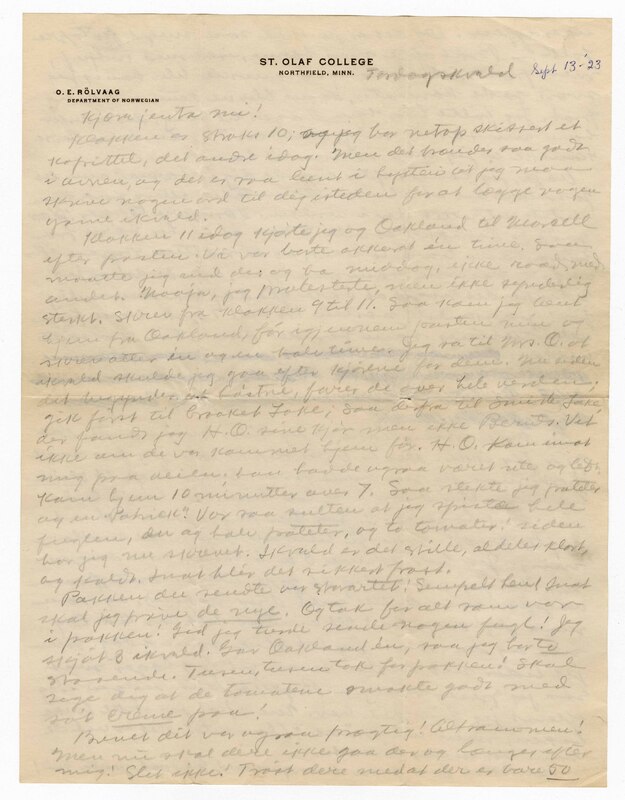 ST. OLAF COLLEGE
NORTHFIELD, MINN.
Torsdagskveld Sept 13-'23
O. E. RÖLVAAG
DEPARTMENT OF NORWEGIAN
Kjære jenta mi!
Klokken er straks 10; og jeg har netop skissert et
kapittel, det andre idag. Men det brænder saa godt
i ovnen, og det er saa lunt i hytten at jeg maa
skrive nogen ord til dig isteden for at lægge nogen
ikveld.
Klokken 11 idag kjørte jeg og Oakland til Marcell
efter posten. Vi var borte akkurat én time. Saa
maatte jeg ind der og ha middag, ikke raad med
andet. Naaja, jeg protesterte, men ikke synderlig
sterkt. Skrev fra klokken 9 til 11. Saa kom jeg
hjem fra Oakland, for igjennem posten min og
skrev atter én og en halv time. Jeg sa til Mrs. O. at
ikveld skulde jeg gaa efter kjørene for dem. Naa
det begynder at høstne, farer de over hele verden.
gik først til Crooket Lake, saa derfra til Smith Lake,
der fandt jeg H.O. sine kjør men ikke Bernts. Vet
ikke om de var kommet hjem før. H.O. kom imot
mig paa veien. han hadde ogsaa været ute og lett.
Kom hjem 10 minutter over 7. Saa stekte jeg poteter
og en "Patrick". Var saa sulten at jeg spiste hele
fuglen, en og halv potet, og to tomater! siden
har jeg nu skrevet. Ikveld er det stille, aldeles klart,
og kaldt. Inat blir det sikkert frost.
Pakken du sendte var storartet! Simpelthen! Inat
skal jeg prøve de nye. Og tak for alt som var
i pakken! Gid jeg turde sende nogen fugl! Jeg
skjøt 3 ikveld. Gav Oakland én, saa jeg har to
. Tusen, tusen tak for pakken! Skal
sige dig at de tomatene smakte godt med
søt Creme paa!
Brevet dit var ogsaa prægtig! Altsammen!
Men nu skal dere ikke gaa der og længes efter
mig! Slet ikke! Trøst dere med at der er bare 50